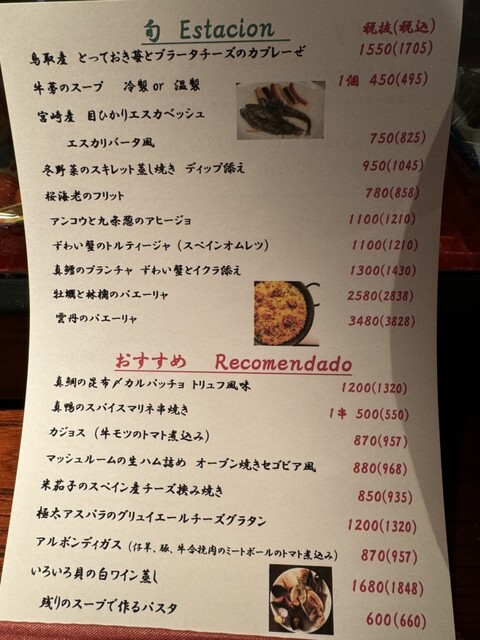 旬 Estacion 税抜(税込)
鳥取産 とっておき苺とブラータチーズのカプレーゼ 1550(1705)
牛蒡のスープ 冷製or 温製 1個 450(495)
宮崎産 目ひかりエスカベッシュ
エスカリバータ風 750(825)
冬野菜のスキレット蒸し焼き ディップ添え 950(1045)
桜海老のフリット 780(858)
アンコウと九条葱のアヒージョ 1100(1210)
ずわい蟹のトルティージャ（スペインオムレツ） 1100(1210)
真鱈のプランチャ ずわい蟹とイクラ添え 1300(1430)
牡蠣と林檎のパエーリャ 2580(2838)
雲丹のパエーリャ 3480(3828)
おすすめ Recomendado
真鯛の昆布〆カルパッチョ トリュフ風味 1200(1320)
真鴨のスパイスマリネ串焼き 1串 500(550)
カジョス（牛モツのトマト煮込み） 870(957)
マッシュルームの生ハム詰め オーブン焼きセゴビア風 880(968)
米茄子のスペイン産チーズ挟み焼き 850(935)
極太アスパラのグリュイエールチーズグラタン 1200(1320)
アルボンディガス（仔羊、豚、牛合挽肉のミートボールのトマト煮込み） 870(957)
いろいろ貝の白ワイン蒸し 1680(1848)
残りのスープで作るパスタ 600(660)